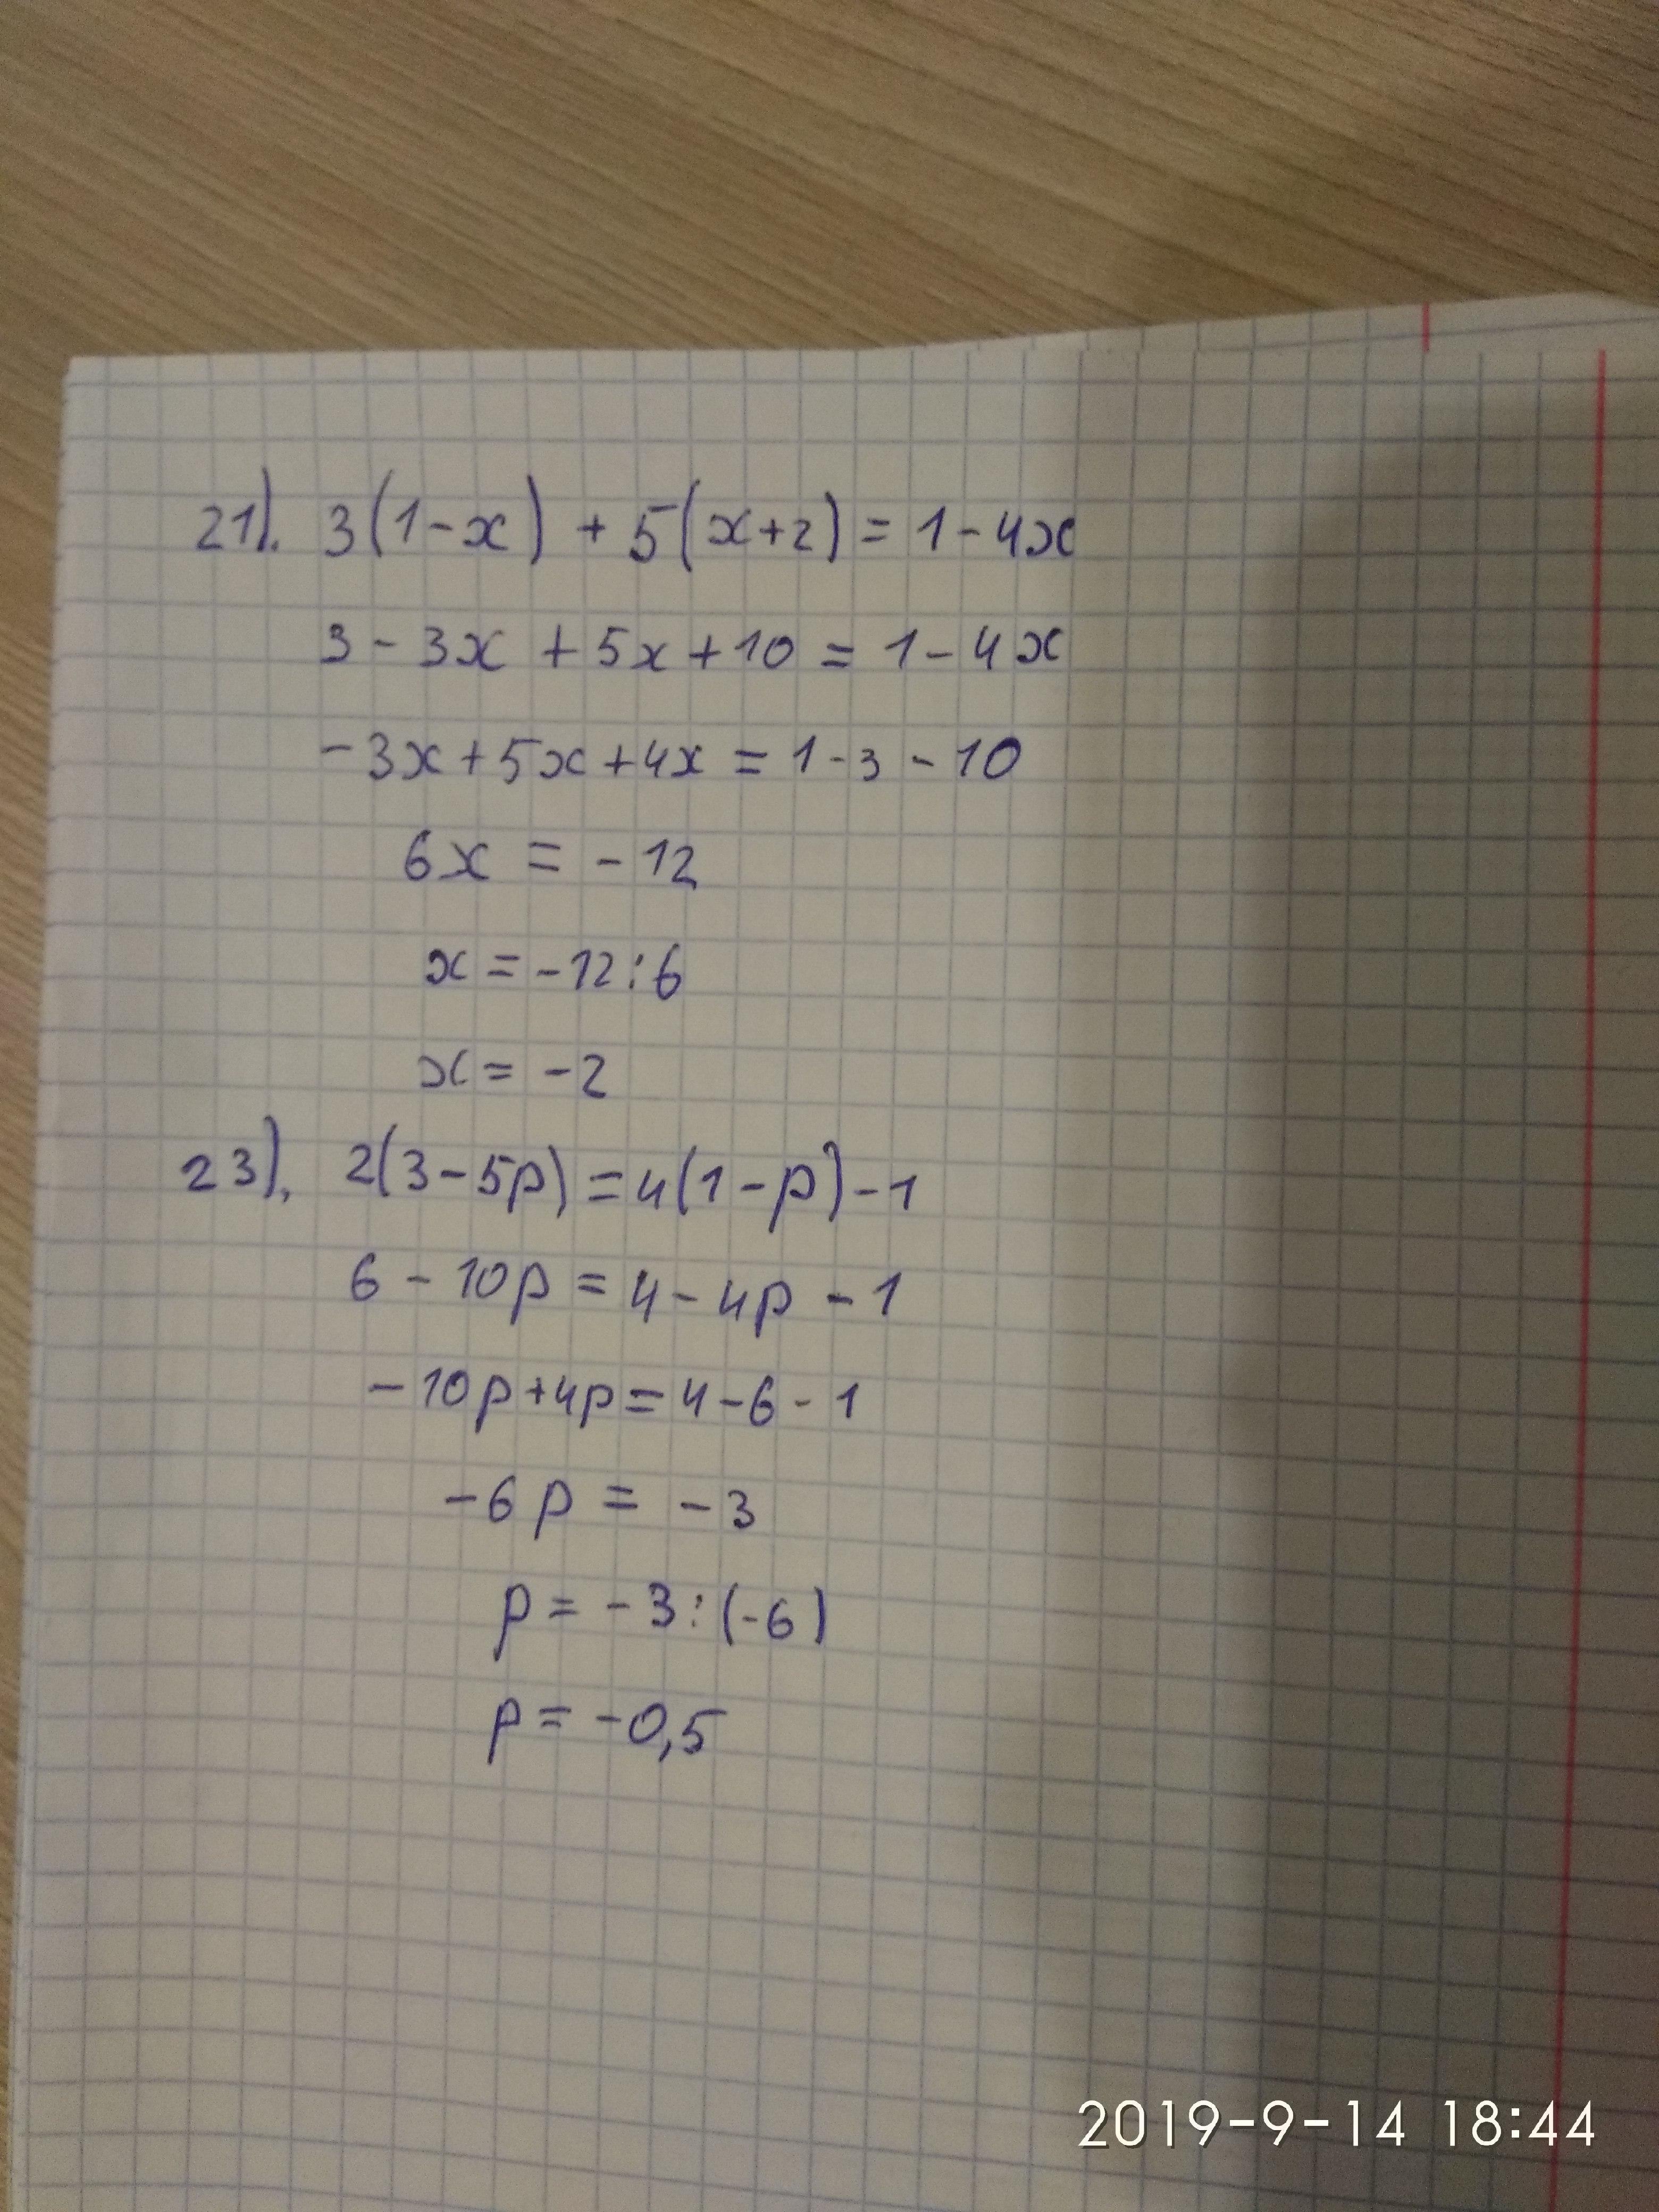 21). 3(1-x) + 5(x+2) = 1-4x
3-3x+5x+10 = 1-4x
-3x+5x+4x = 1-3-10
6x = -12
x = -12:6
x = -2
23). 2(3-5p) = 4(1-p)-1
6-10p = 4-4p-1
-10p+4p = 4-6-1
-6p = -3
p = -3:(-6)
p = -0,5
2019-9-14 18:44